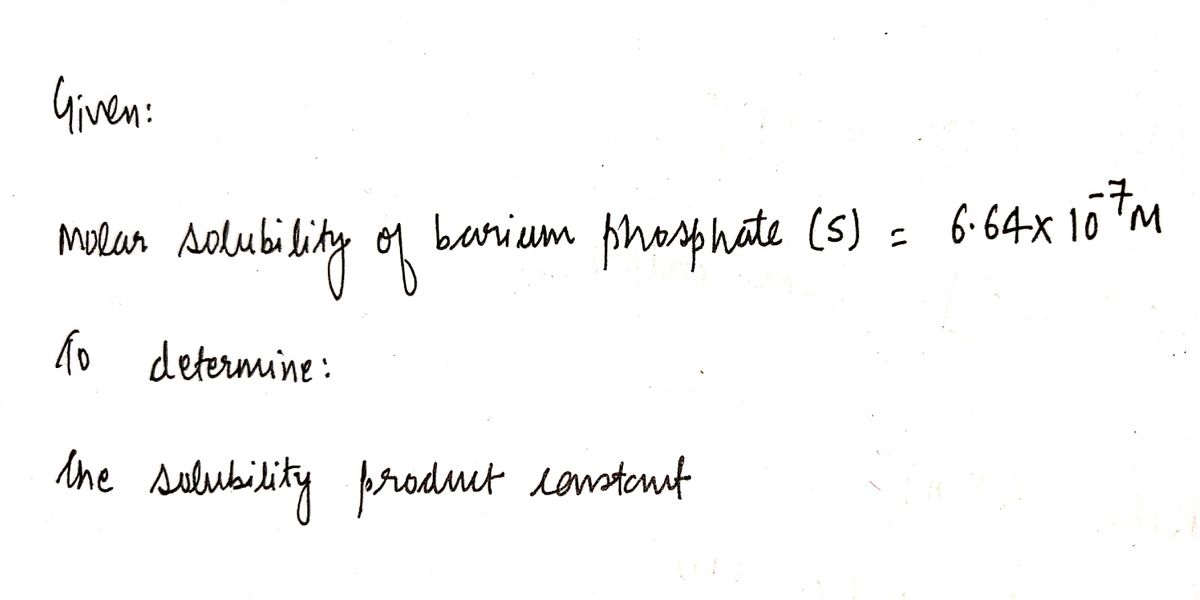 Given:
Molar solubility of barium phosphate (S) = 6.64x 10⁻⁷M
To determine:
The solubility product constant